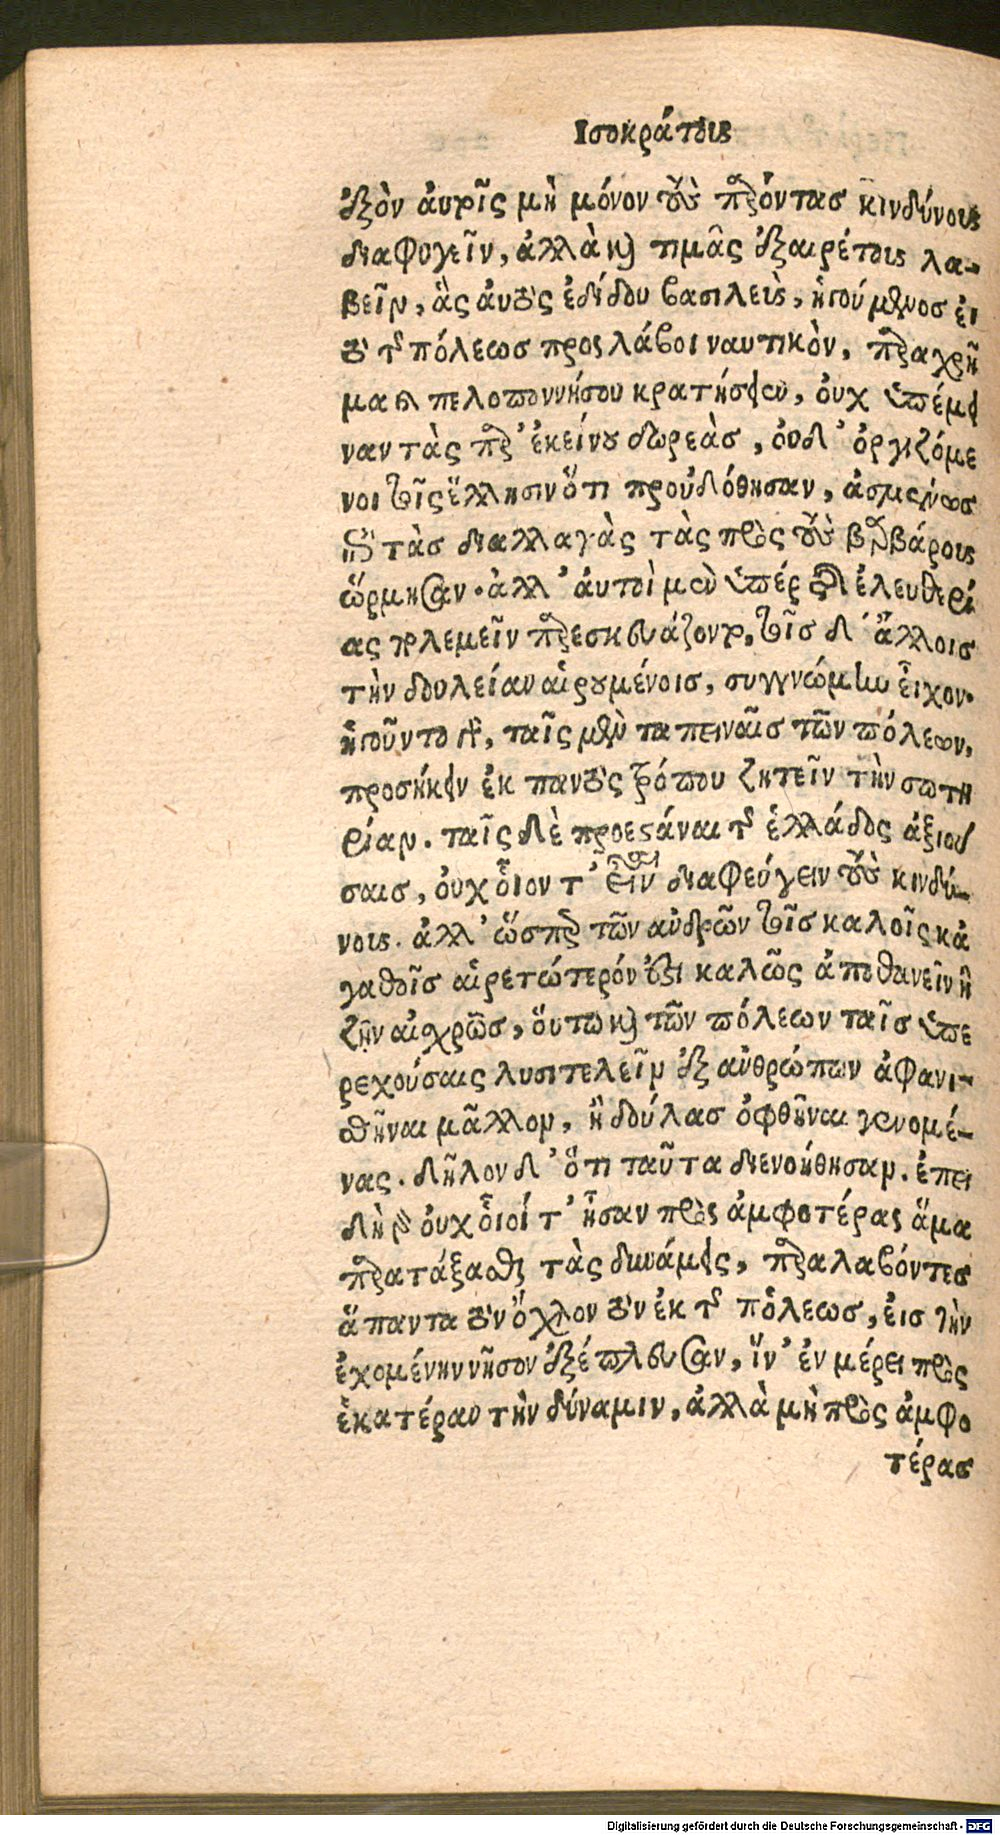 Ισοκράτους
ἐξὸν αὐτοῖς μὴ μόνον τοὺς παρόντας κινδύνους
διαφυγεῖν, ἀλλὰ καὶ τιμὰς ἐξαιρέτους λα-
βεῖν, ἃς ἀυτοῖς ἐδίδου βασιλεὺς, ἡγούμενος εἰ
τὸ τῆς πόλεως προσλάβοι ναυτικὸν, παραχρῆ
μα καὶ πελοποννήσου κρατήσειν, οὐχ ὑπέμει
ναν τὰς παρ' ἐκείνου δωρεὰς, ὀυδ' ὀργιζόμε
νοι τοῖς ἕλλησιν ὅτι προὐδόθησαν, ἀσμένως
ἐπὶ τὰς διαλλαγὰς τὰς πρὸς τοὺς βαρβάρους
ὥρμησαν. ἀλλ' ἀυτοὶ μὲν ὑπὲρ τῆς ἐλευθερί
ας πολεμεῖν παρεσκευάζοντο, τοῖς δ' ἄλλοις
τὴν δουλείαν αἱρουμένοις, συγγνώμην εἶχον.
ἡγοῦντο γὰρ, ταῖς μὲν ταπειναῖς τῶν πόλεων,
προσήκειν ἐκ παντὸς τρόπου ζητεῖν τὴν σωτη
ρίαν. ταῖς δὲ προεστάναι τῆς ἑλλάδος ἀξιού
σαις, οὐχ οἷόν τ' εἶναι διαφεύγειν τοὺς κινδύ-
νους. ἀλλ' ὥσπερ τῶν ἀνδρῶν τοῖς καλοῖς κἀ
γαθοῖς αἱρετώτερόν ἐστι καλῶς ἀποθανεῖν ἢ
ζῆν αἰσχρῶς, ὅυτω καὶ τῶν πόλεων ταῖς ὑπε
ρεχούσαις λυσιτελεῖν ἐξ ἀνθρώπων ἀφανι-
σθῆναι μᾶλλον, ἢ δούλας ὀφθῆναι γενομέ-
νας. δῆλον δ' ὅτι ταῦτα διενοήθησαν. ἐπει
δὴ γὰρ ὀυχ οἷοί τ' ἦσαν πρὸς ἀμφοτέρας ἅμα
παρατάξασθαι τὰς δυνάμεις, παραλαβόντες
ἅπαντα τὸν ὄχλον τὸν ἐκ τῆς πόλεως, εἰς τὴν
ἐχομένην νῆσον ἐξέπλευσαν, ἵν' ἐν μέρει πρὸς
ἑκατέραν τὴν δύναμιν, ἀλλὰ μὴ πρὸς ἀμφο
τέρας
Digitalisierung gefördert durch die Deutsche Forschungsgemeinschaft - DFG